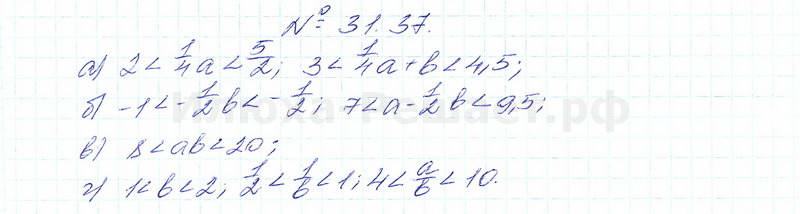 № 31.37.
а) 2 < 1/4 a < 5/2; 3 < 1/4 a + b < 4,5;
б) -1 < -1/2 b < -1/2; 7 < a - 1/2 b < 9,5;
в) 8 < ab < 20;
г) 1 < b < 2; 1/2 < 1/b < 1; 4 < a/b < 10.